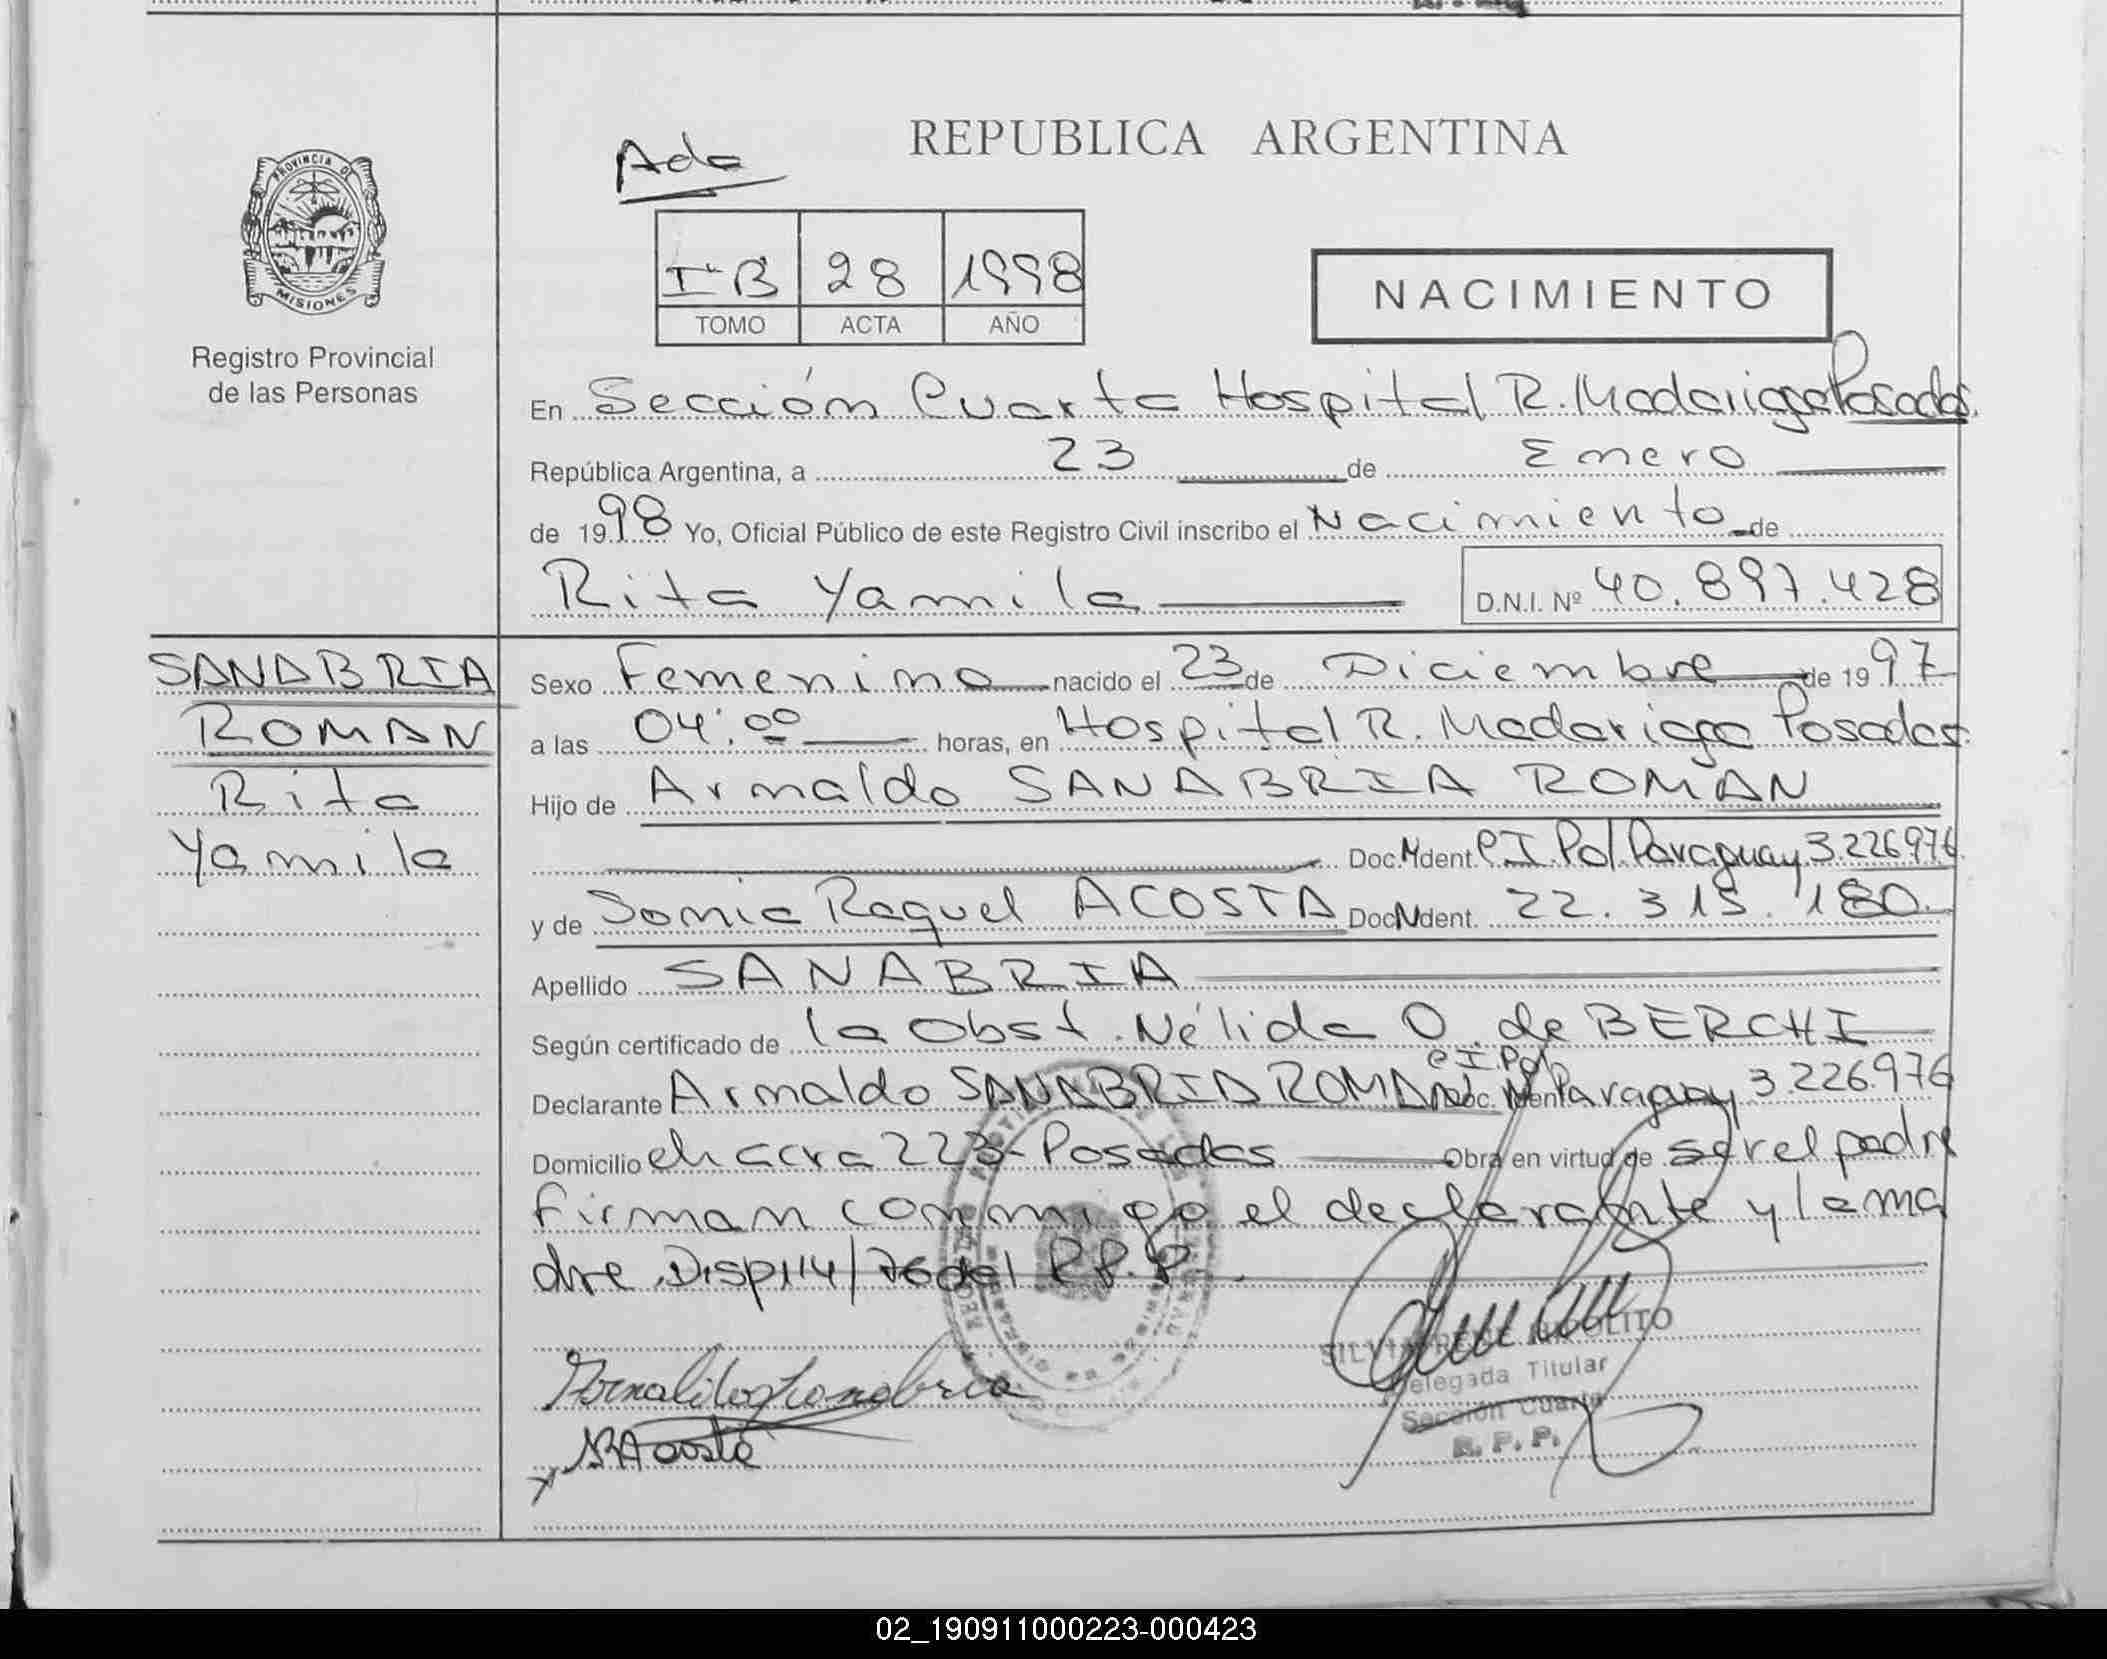 Ada
REPUBLICA ARGENTINA
PROVINCIA DE
MISIONES
Registro Provincial
de las Personas
Iº B 28 1998
TOMO ACTA AÑO
NACIMIENTO
En Sección Cuarta Hospital R. Madariaga Posadas.
República Argentina, a 23 de Enero
de 1998 Yo, Oficial Público de este Registro Civil inscribo el Nacimiento de
Rita Yamila D.N.I. Nº 40.897.428
SANABRIA
ROMAN
Rita
Yamila
Sexo Femenino nacido el 23 de Diciembre de 1997
a las 04:00 horas, en Hospital R. Madariaga Posadas.
Hijo de Arnaldo SANABRIA ROMAN
Doc. Ident. C I. Pol Paraguay 3.226.976
y de Sonia Raquel ACOSTA Doc Ident. 22.315.180
Apellido SANABRIA
Según certificado de la Obst. Nélida O. de BERCHI
Declarante Arnaldo SANABRIA ROMAN Doc. Ident C I. Pol Paraguay 3.226.976
Domicilio chacra 223- Posadas Obra en virtud de ser el padre
firman conmigo el declarante y la ma
dre. Disp 114/76 del R.P.P.
Arnaldo Sanabria
SRAcosta
SILVIA IRENE HIPOLITO
Delegada Titular
Sección Cuarta
R. P. P.
02_190911000223-000423